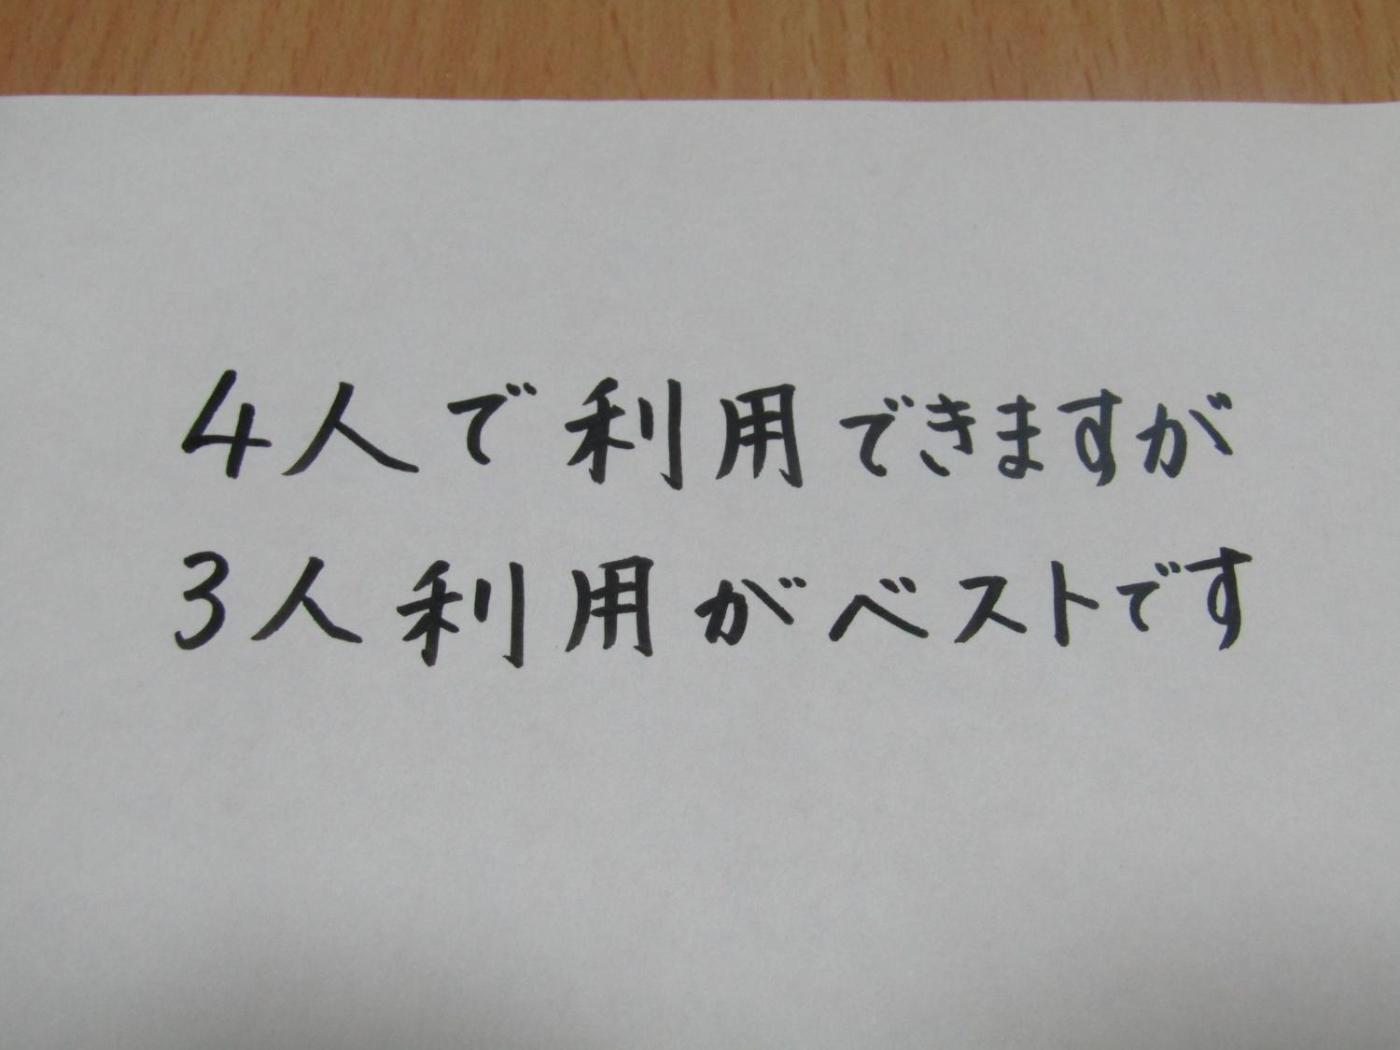 4人で利用できますが
3人利用がベストです